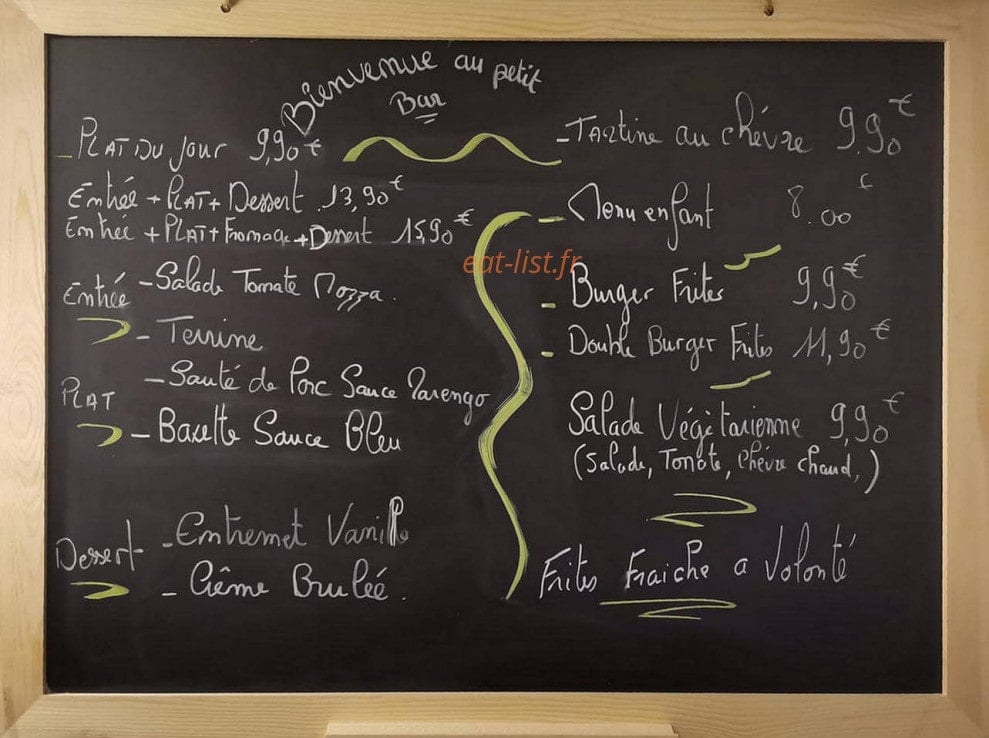 Bienvenue au petit
Bar
- PLAT DU jour 9,90 €
Entrée + PLAT + Dessert 13,90 €
Entrée + PLAT + Fromage + Dessert 15,90 €
Entrée - Salade Tomate Mozza.
- Terrine
PLAT
- Sauté de Porc Sauce Marengo
- Bavette Sauce Bleu
Dessert
- Entremet Vanille
- Crême Bruléé.
- Tartine au chévre 9.90 €
- Menu enfant 8.00 €
- Burger Frites 9,90 €
- Double Burger Frites 11,90 €
Salade Végétarienne 9,90 €
(Salade, Tomate, Chévre chaud,)
Frites Fraiche a Volonté
eat-list.fr